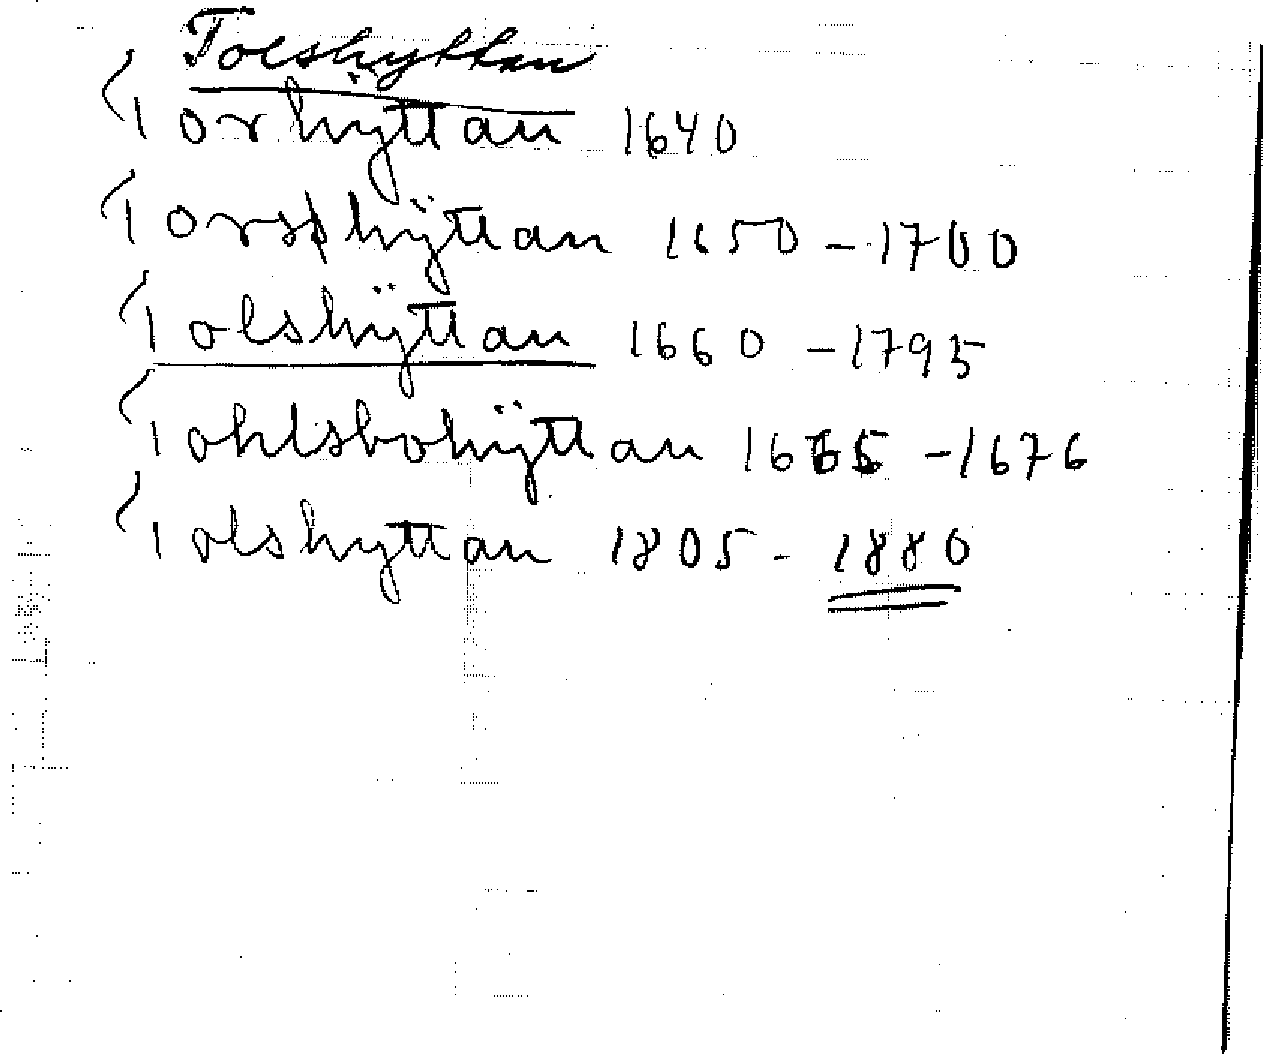 Tolshyttan
Torhyttan 1640
Torsphÿttan 1650 - 1700
Tolshÿttan 1660 - 1795
Tohlsbohÿttan 1665 - 1676
Tolshyttan 1805 - 1880